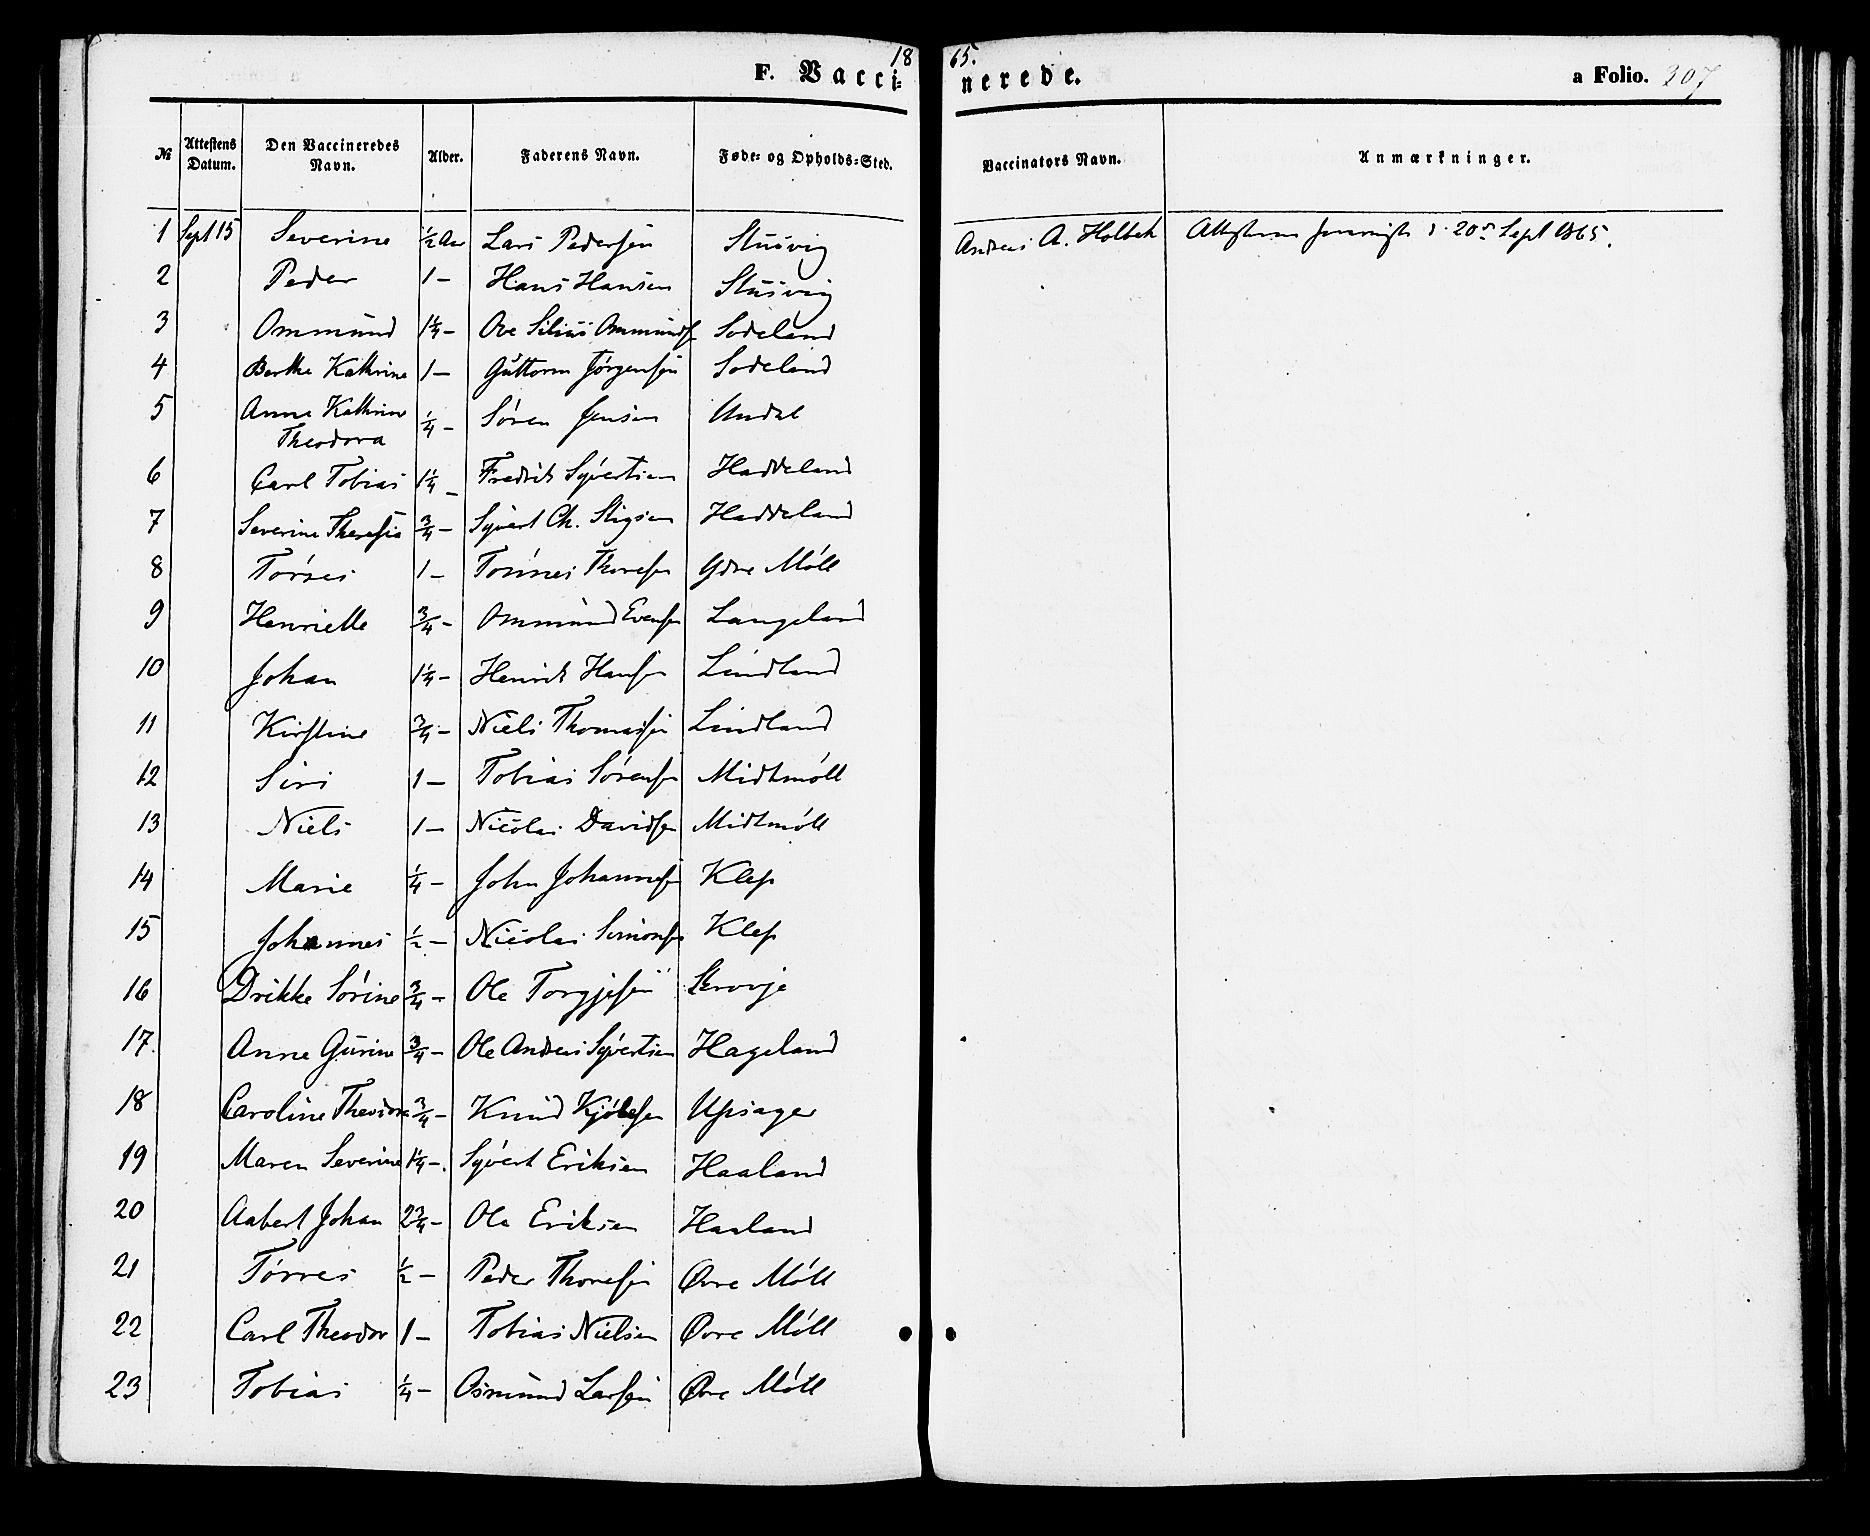 1865.
F. Vaccinerede.
a Folio. 207
№ Attestens Datum. Den Vaccineredes Navn. Alder. Faderens Navn. Føde- og Opholds-Sted. Vaccinators Navn. Anmærkninger.
1 Sept 15 Severine ½ Aar Lars Pedersen Stusvig Andreas A. Holbek Attesterne d. 20de Sept 1865.
2 Peder 1 - Hans Hansen Stusvig
3 Ommund 1¼ - Ove Silius Ommunds Sodeland
4 Berthe Kathrine 1 - Guttorm Jørgensen Sodeland
5 Anne Kathrine Theodora ¼ - Søren Jensen Undal
6 Carl Tobias 1¼ - Fredrik Syvertsen Haddeland
7 Severine Theresia ¾ - Syvert Ch. Stigsen Haddeland
8 Tørres 1 - Tønnes Thoresen Ydre Møll
9 Henriette ¾ - Ommund Evensen Langeland
10 Johan 1¼ - Henrik Hansen Lindland
11 Kirstine ¾ - Niels Thomassen Lindland
12 Siri 1 - Tobias Sørensen Midtmøll
13 Niels 1 - Nicolai Davidsen Midtmøll
14 Marie ¼ - John Johannesen Klep
15 Johannes ½ - Nicolai Simonsen Klep
16 Drikke Sørine ¾ - Ole Torgjesen Skovje
17. Anne Gurine ¾ - Ole Andreas Syvertsen Hageland
18 Caroline Theodora ¾ - Knud Upsager
19 Maren Severine 1¼ -. Syvert Eriksen Haaland
20 Aabert Johan 2¾ - Ole Eriksen Haaland
21 Tørres ½ - Peder Thoresen Øvre Møll
22 Carl Theodor 1 - Tobias Nielsen Øvre Møll
23 Tobias ¼ - Osmund Larsen Øvre Møll